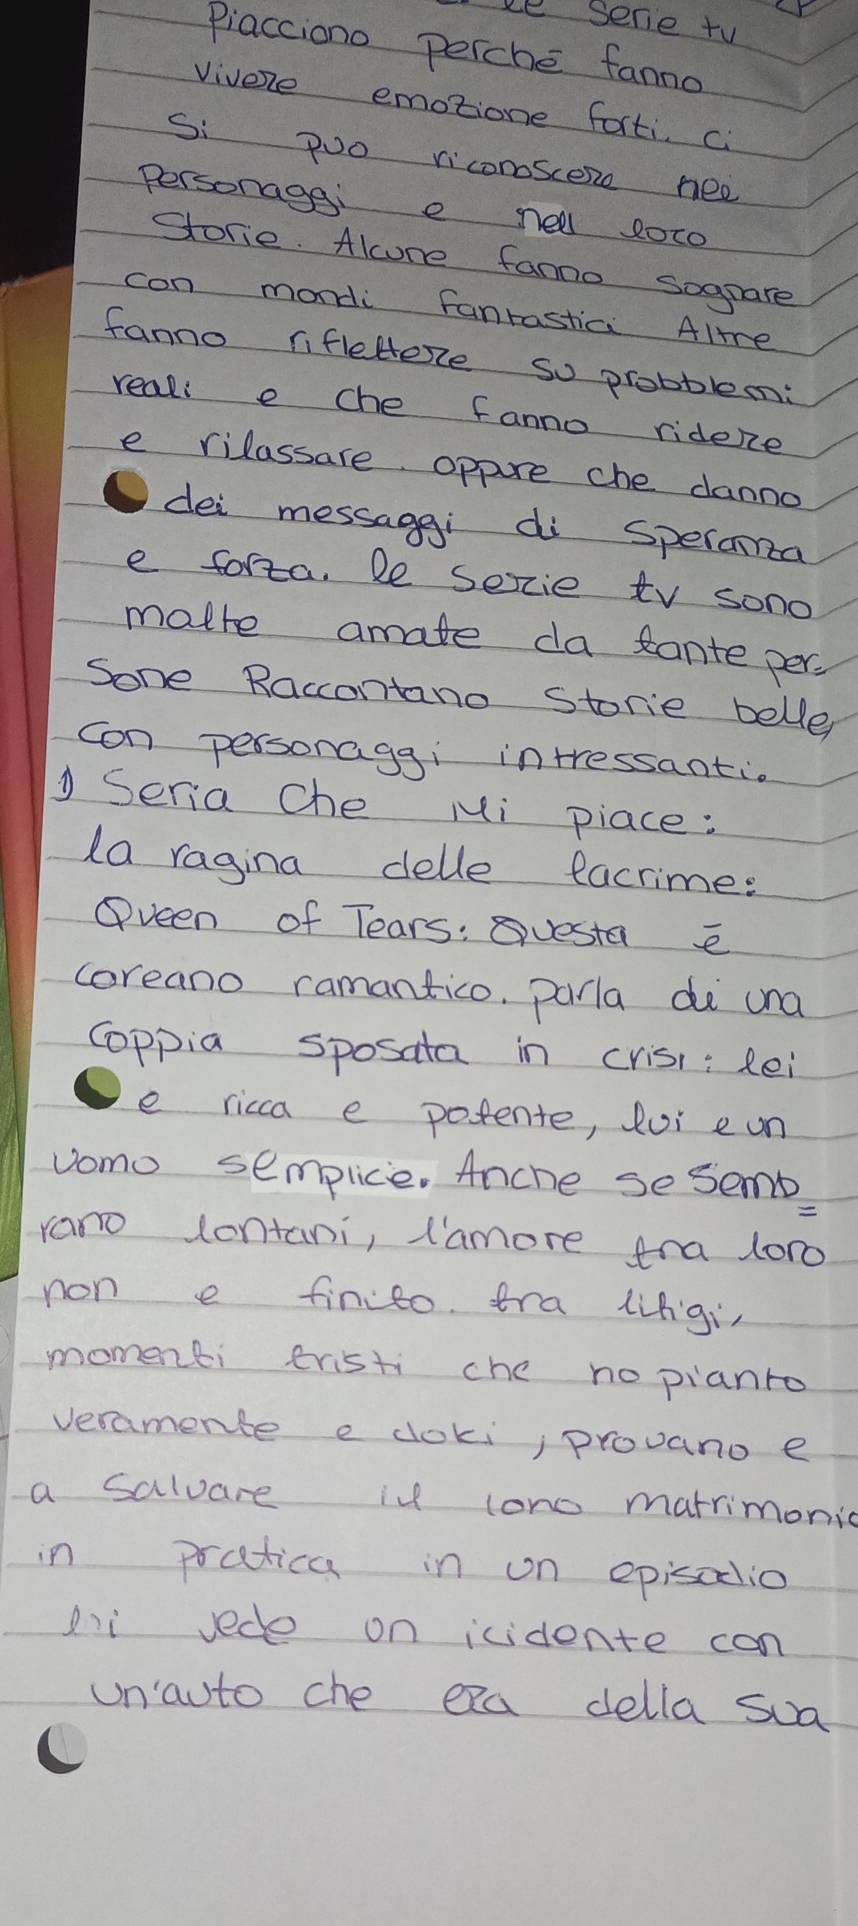 le serie tv
Piacciono perchē fanno
vivere emozione forti. ci
si può riconoscere nei
Personaggi e nell loro
Storie. Alcune fanno sognare
con mondi fantastici Altre
fanno riflettere su probblemi
reali e che fanno ridere
e rilassare. oppure che danno
dei messaggi di speranza
e forza. le serie tv sono
malte amate da tante per=
sone Raccontano storie belle,
con personaggi intressanti.
1) Seria che Mi piace:
la ragina delle lacrime:
Queen of Tears: Questa ē
coreano ramantico. parla di una
coppia sposata in crisi: lei
e ricca e potente, lui e un
uomo semplicie. Anche se semb=
rano lontani, l'amore tra loro
non e finito. tra litigi,
momenti tristi che no pianto
veramente e doki, provano e
a salvare il lono matrimonio
in pratica in un episodio
lui vede on icidente con
un'auto che era della sua